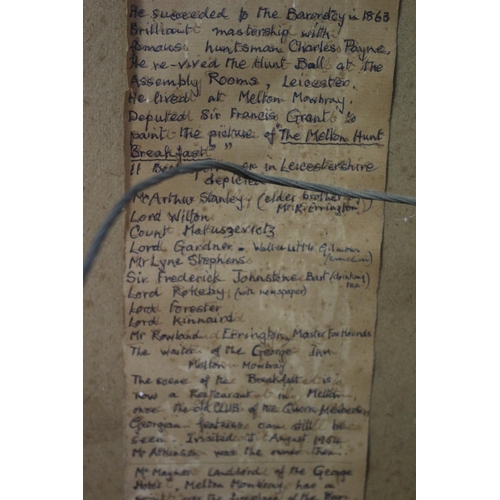 He succeeded to the Baronetcy in 1863
Brilliant mastership with
famous huntsman Charles Payne.
He re-vived the Hunt Ball at the
Assembly Rooms, Leicester.
He lived at Melton Mowbray.
Deputed Sir Francis Grant to
paint the picture of "The Melton Hunt
Breakfast"
11 in Leicestershire
depicted
Mr Arthur Stanley (elder brother
Mr R. Errington)
Lord Wilton
Count Matuszevictz
Lord Gardner - Walter Little Gilmour
Mr Lyne Stephens
Sir Frederick Johnstone Bart (drinking tea)
Lord Rokeby (with newspaper)
Lord Forester
Lord Kinnaird
Mr Rowland Errington Master Fox Hounds
The waiter of the George Inn
Melton Mowbray.
The scene of the Breakfast is
now a Restaurant in Melton
once the old CLUB of the Quorn
Georgian features can still be
seen. I visited I August 1964
Mr Atkinson was the owner then.
Mr Mayner Landlord of the George
Hotel. Melton Mowbray has a